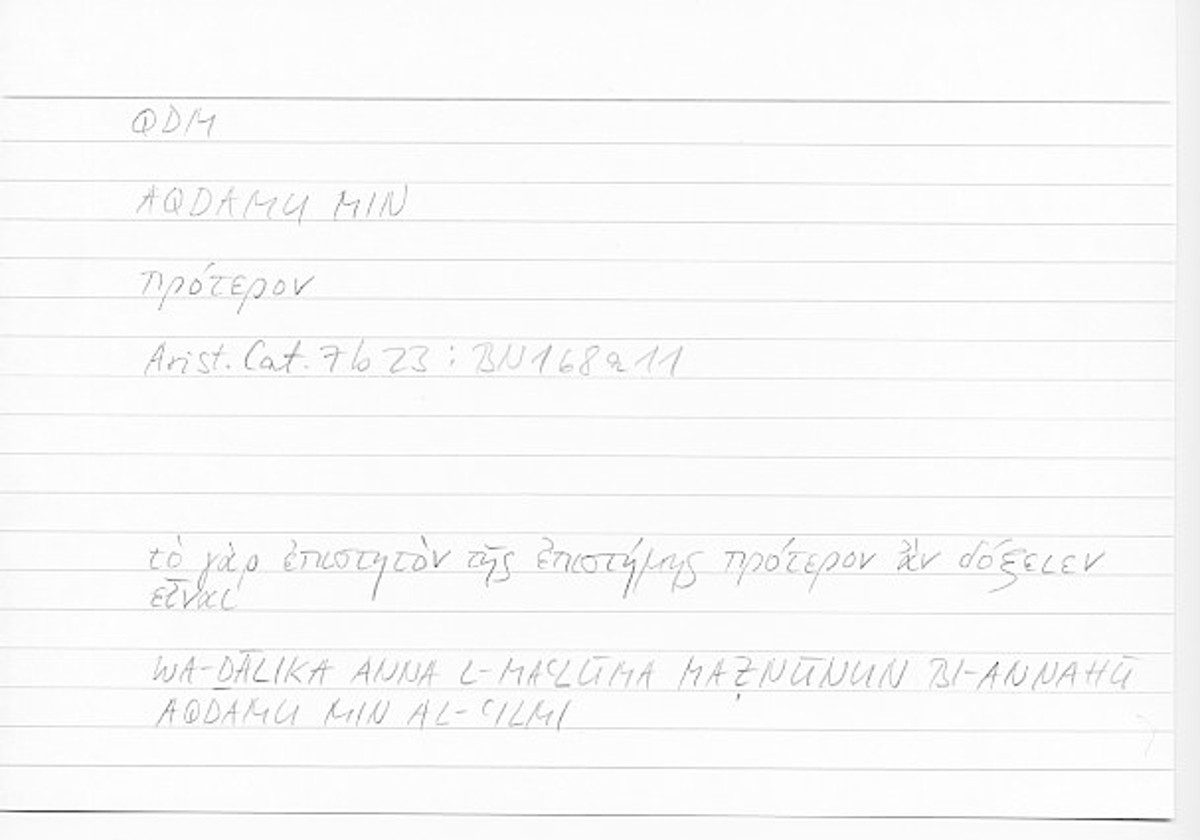 QDM
AQDAMU MIN
πρότερον
Arist. Cat. 7b23 : BN168a11
τὸ γὰρ ἐπιστητὸν τῆς ἐπιστήμης πρότερον ἂν δόξειεν
εἶναι
WA-ḎĀLIKA ANNA L-MAʿLŪMA MAẒNŪNUN BI-ANNAHŪ
AQDAMU MIN AL-ʿILMI